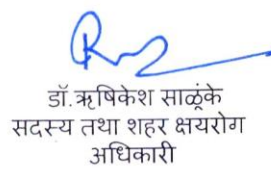 डॉ.ऋषिकेश साळुंके
सदस्य तथा शहर क्षयरोग
अधिकारी